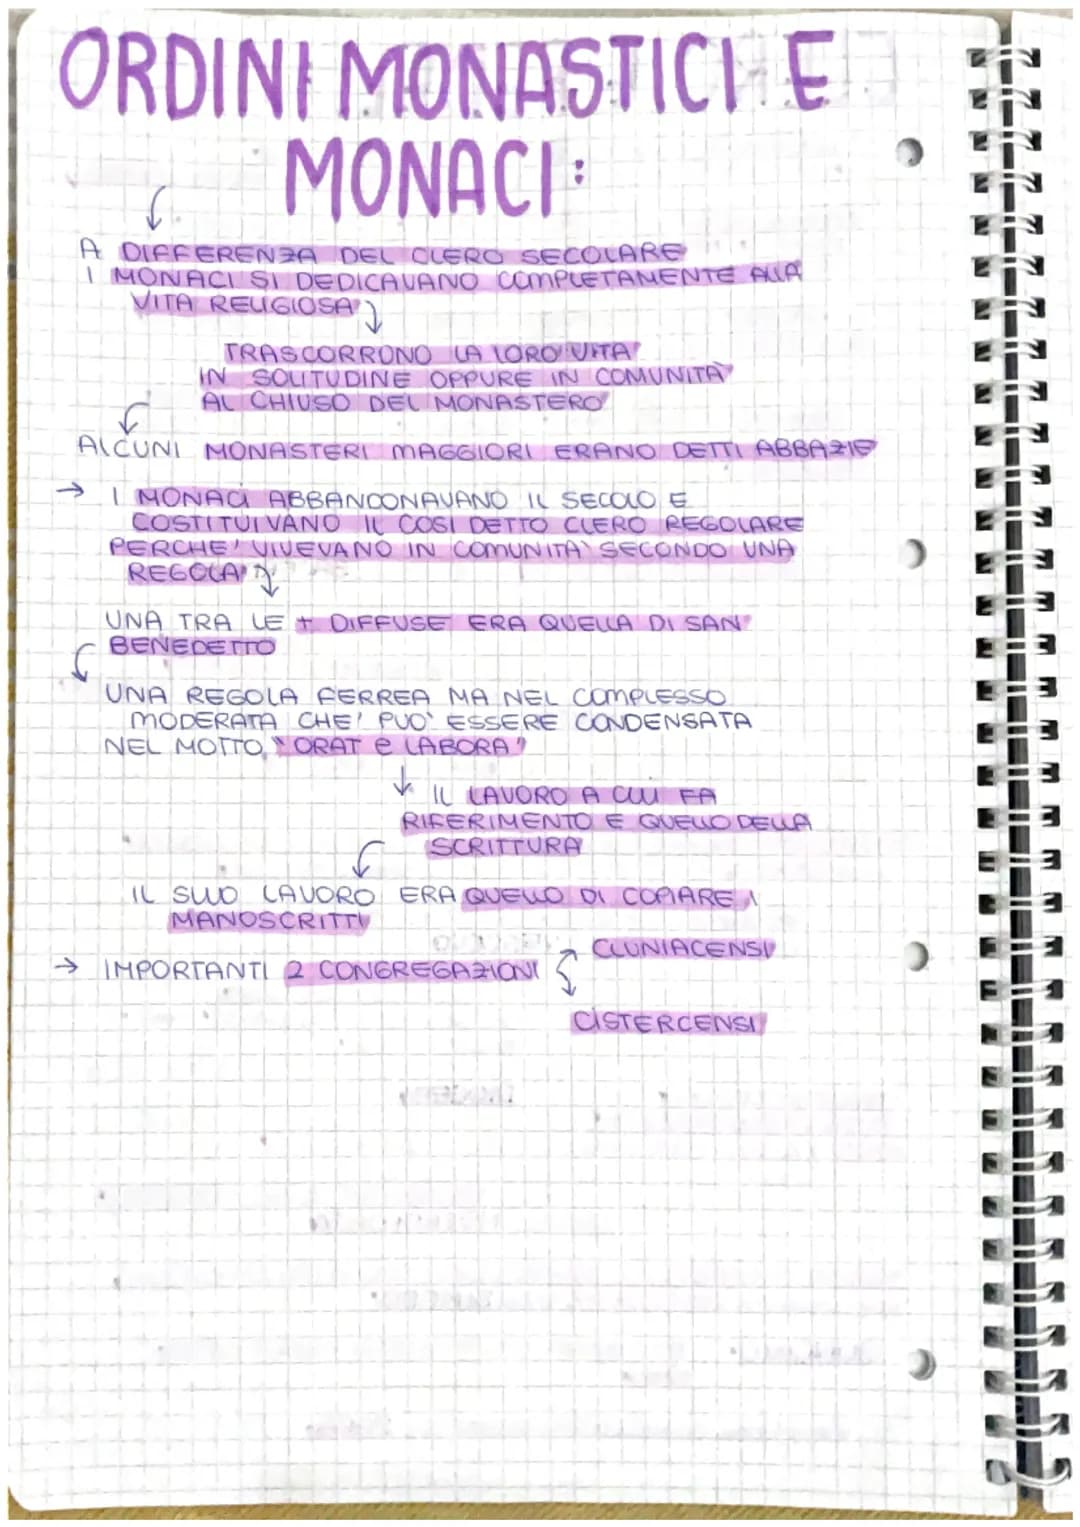 ORDINI MONASTICI E
MONACI:
A DIFFERENZA DEL CLERO SECOLARE
I MONACI SI DEDICAVANO COMPLETAMENTE ALLA
VITA RELIGIOSA
TRASCORRONO LA LORO VITA
IN SOLITUDINE OPPURE IN COMUNITÀ
AL CHIUSO DEL MONASTERO
ALCUNI MONASTERI MAGGIORI ERANO DETTI ABBAZIE
→ I MONACI ABBANDONAVANO IL SECOLO E
COSTITUIVANO IL COSI DETTO CLERO REGOLARE
PERCHE' VIVEVANO IN COMUNITA' SECONDO UNA
REGOLA
UNA TRA LE + DIFFUSE ERA QUELLA DI SAN
BENEDETTO
UNA REGOLA FERREA MA NEL COMPLESSO
MODERATA CHE' PUO' ESSERE CONDENSATA
NEL MOTTO "ORAT e LABORA"
IL LAVORO A CUI FA
RIFERIMENTO E QUELLO DELLA
SCRITTURA
IL SUO LAVORO ERA QUELLO DI COPIARE I
MANOSCRITTI
CLUNIACENSI
→ IMPORTANTI 2 CONGREGAZIONI
CISTERCENSI